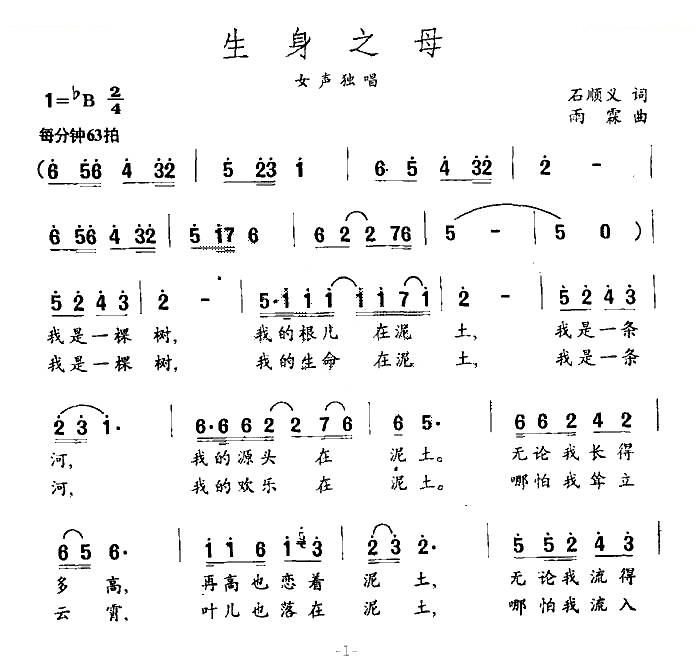 生身之母
女声独唱
1=♭B 2/4
石顺义 词
每分钟63拍
雨 霖 曲
(6 56 4 32 | 5 23 1 | 6· 5 4 32 | 2 - |
6 56 4 32 | 5 i7 6 | 6 2 2 76 | 5 - | 5 0 )|
5 2 4 3 | 2 - | 5·1 1 1 1 1 7 1 | 2 - | 5 2 4 3 |
我是一棵 树, 我的根儿 在泥 土, 我是一条
我是一棵 树, 我的生命 在泥 土, 我是一条
2 3 1· | 6·6 6 2 2 7 6 | 6 5· | 6 6 2 4 2 |
河, 我的源头 在 泥 土。 无论我长得
河, 我的欢乐 在 泥 土。 哪怕我耸立
6 5 6· | 1 1 6 1 3 | 2 3 2· | 5 5 2 4 3 |
多 高, 再高也恋着 泥 土, 无论我流得
云 霄, 叶儿也落在 泥 土, 哪怕我流入
-1-